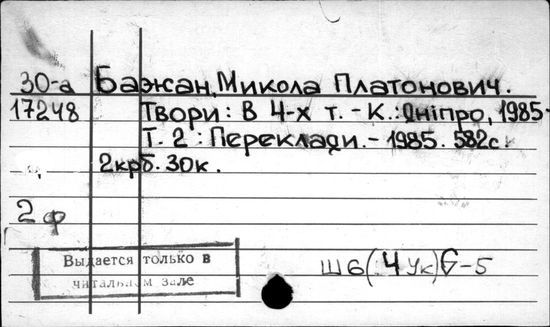 30-а Бажан, Микола Платонович.
17248 Твори: В 4-х т. - К.: Дніпро, 1985.
Т. 2: Переклади. - 1985. 582с.
2крб. 30к.
2 ф
Выдается только в
читальном зале
Ш6(4Ук)6-5